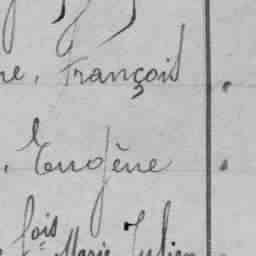 ne, François
, Eugène
fois Marie Julien